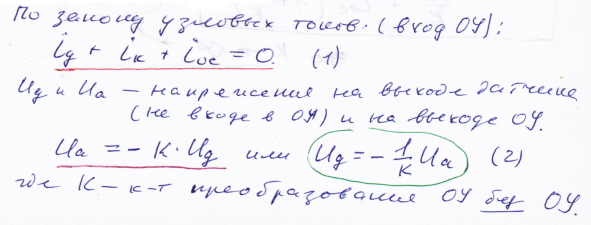 По закону узловых токов. (вход ОУ):
iд + iк + iос = 0. (1)
Uд и Uа – напряжения на выходе датчика
(не входе в ОУ) и на выходе ОУ.
Uа = – К · Uд или Uд = – 1/К Uа (2)
где К – к-т преобразования ОУ без ОУ.